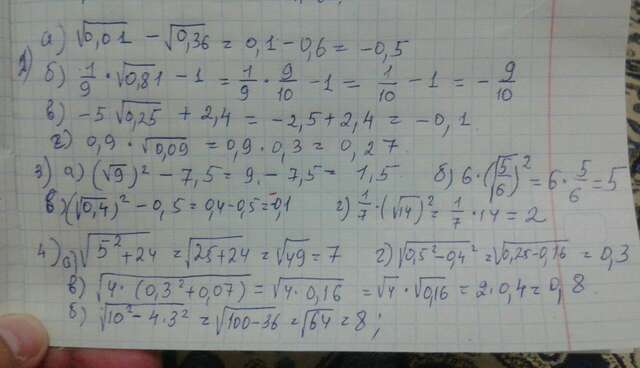 а) √0,01 − √0,36 = 0,1 − 0,6 = −0,5
2) б) 1/9 · √0,81 − 1 = 1/9 · 9/10 − 1 = 1/10 − 1 = − 9/10
в) −5 √0,25 + 2,4 = −2,5 + 2,4 = −0,1
г) 0,9 · √0,09 = 0,9 · 0,3 = 0,27
3) а) (√9)² − 7,5 = 9 − 7,5 = 1,5 б) 6 · (√5/6)² = 6 · 5/6 = 5
в) (√0,4)² − 0,5 = 0,4 − 0,5 = −0,1 г) 1/7 · (√14)² = 1/7 · 14 = 2
4) а) √5² + 24 = √25 + 24 = √49 = 7 г) √0,5² − 0,4² = √0,25 − 0,16 = 0,3
в) √4 · (0,3² + 0,07) = √4 · 0,16 = √4 · √0,16 = 2 · 0,4 = 0,8
б) √10² − 4 · 3² = √100 − 36 = √64 = 8 ;